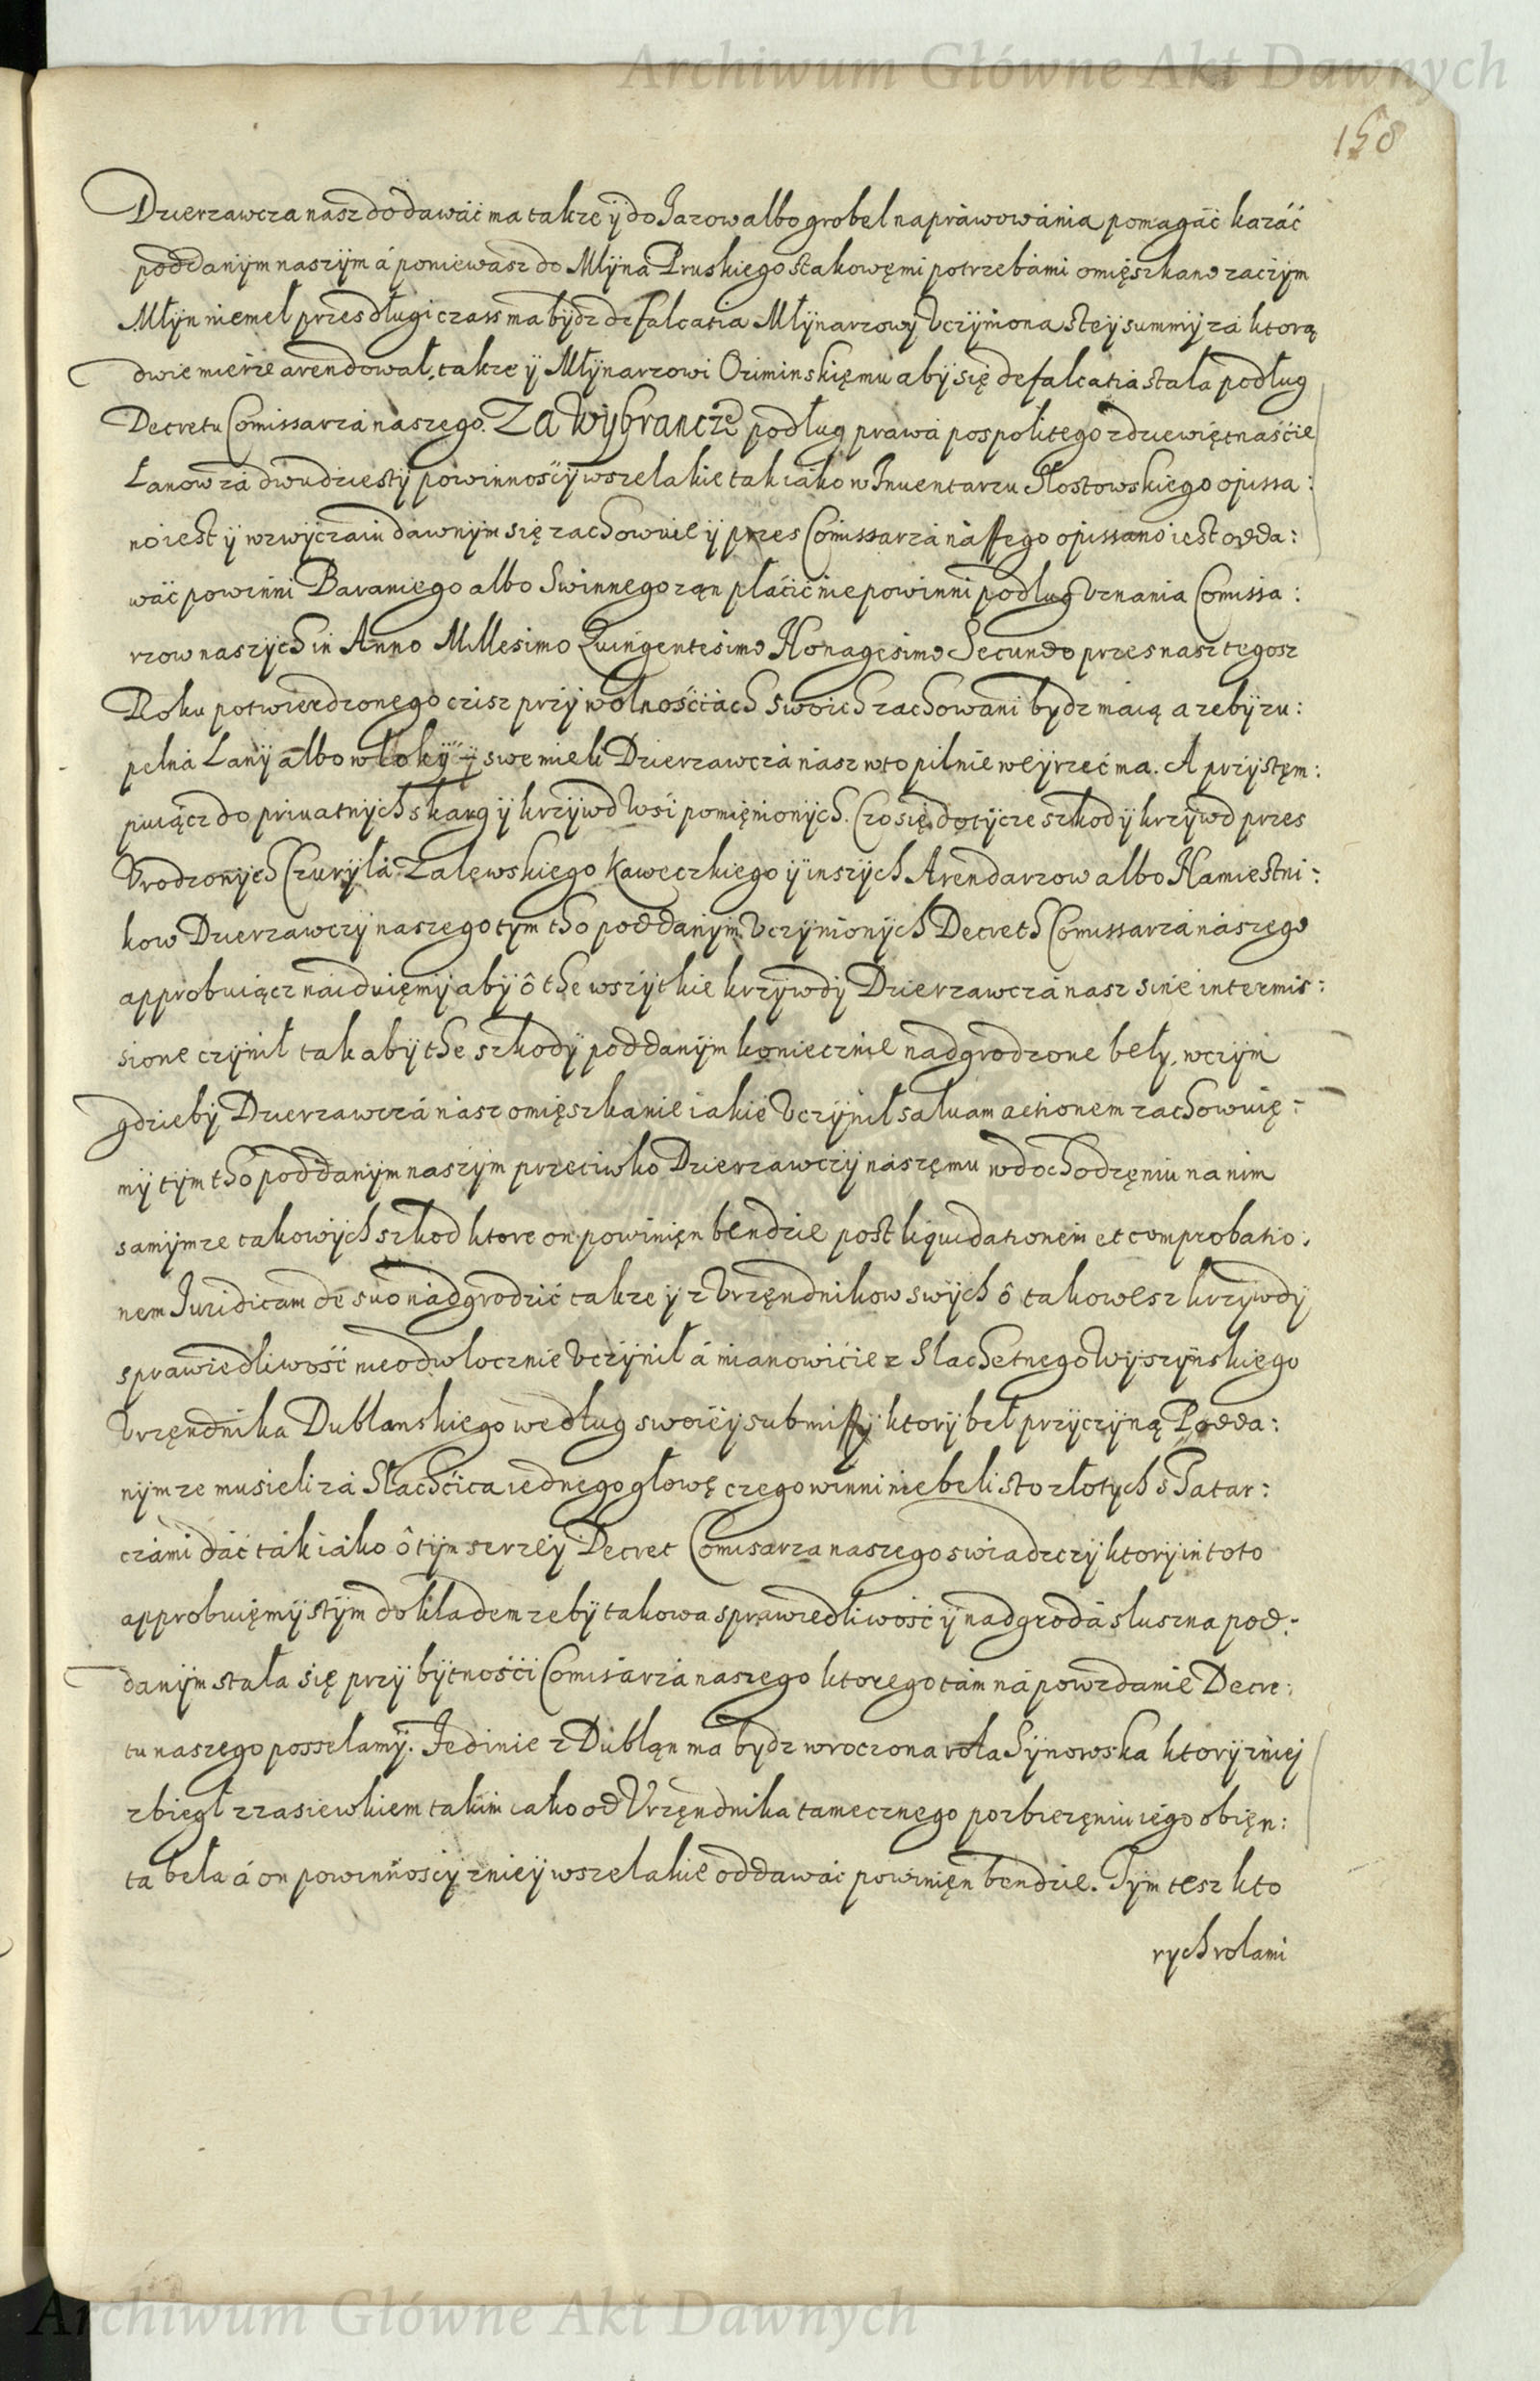 Archiwum Główne Akt Dawnych
158
Dzierzawcza nasz dodawáć ma takze ÿ do Jazow albo grobel naprawowánia pomagáć kazáć
poddanÿm naszÿm á poniewasz do Młÿná Pruskiego stakowęmi potrzebámi omięszkano zaczÿm
Młÿn niemeł przes długi czass ma bÿdz defalcatia Młÿnarzowÿ Vczÿniona steÿ summÿ zá ktorą
dwie mierze arendował, takze ÿ Młÿnarzowi Oziminskięmu abÿ się defalcatia stała podług
Decretu Comissarzá naszego. Za Wÿbrancze podług prawá pospolitego z dziewiętnaśćie
Łanow zá dwudziestÿ powinnośćÿ wszelakie tak iáko w Inuentarzu Słostowskiego opissa:
no iest ÿ w zwÿczaiu dawnÿm się zachowuie ÿ przes Comissarzá nassego opissano iest odda:
wáć powinni Baraniego albo Swinnego ząn płáćić nie powinni podług Vznania Comissa:
rzow naszÿch in Anno Millesimo Quingentesimo Nonagesimo Secundo przes nasz tegosz
Roku potwierdzonego czisz przÿ wolnośćiách swoich zachowani bÿdz maią a zebÿ zu:
pełná Łanÿ albo włokÿ ÿ swe mieli Dzierzawczá nász w to pilnie weÿrzeć ma. A przÿstęm:
puiącz do priuatnÿch skarg ÿ krzÿwd Wśi pomięnionÿch. Czo się dotÿcze szkod ÿ krzÿwd przes
Vrodzonÿch Czuryłá Zalewskiego Kaweczkiego ÿ inszÿch Arendarzow albo Namiestni:
kow Dzierzawczÿ naszego tym tho poddanÿm Vczÿnionÿch Decreth Comissarzá nászego
approbuiącz náiduięmÿ abÿ ô the wszÿtkie krzÿwdÿ Dzierzawczá nasz sine intermis:
sione czÿnił tak abÿ the szkodÿ poddanÿm koniecznie nadgrodzone beły, w czÿm
gdziebÿ Dzierzawczá nász omięszkanie iakie Vczÿnił saluam actionem zachowuię:
mÿ tÿm tho poddanÿm naszÿm przeciwko Dzierzawczÿ nászęmu w dochodzęniu na nim
samÿm ze takowÿch szkod ktore on powinięn bendzie post liquidationem et comprobatio:
nem Juridicam de suo nádgrodzić takze ÿ z Vrzęndnikow swÿch ô takowesz krzÿwdÿ
sprawiedliwość nieodwłocznie Vczÿnił á mianowićie z Slachetnego Wÿszÿnskięgo
Vrzęndnika Dublanskiego według swoieÿ submissÿ ktorÿ beł przÿczÿną Podda:
nÿm ze musieli zá Slachćica iednego głowę czego winni niebeli sto złotÿch s Tatar:
czámi dáć ták iáko ô tÿm szrzeÿ Decret Comisarza naszego swiadzczÿ ktorÿ in toto
approbuięmÿ s tÿm dokładem zebÿ takowa sprawiedliwość ÿ nadgrodá słuszna pod:
danÿm stała się przÿ bÿtnośći Comisárzá naszego ktorego tám ná powzdanie Decre:
tu naszego posselamÿ. Jedinie z Dubląn ma bÿdz wroczona rola Sÿnowska ktorÿ zniej
zbiegł z zasiewkiem takim iako od Vrzęndnika tamecznego po zbierzęniu iego obięn:
ta beła á on powinnośćÿ znieÿ wszelakie oddawáć powinięn bendzie. Tÿm tesz kto
rych rolami
Archiwum Główne Akt Dawnych